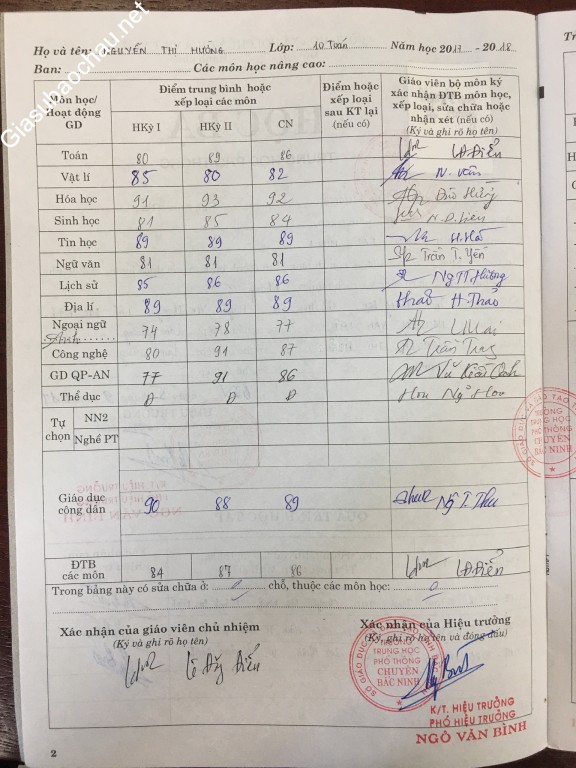 Giasubaochau.net
Họ và tên: NGUYỄN THỊ HƯỜNG Lớp: 10 Toán Năm học 2017 - 2018
Ban: Các môn học nâng cao:
Môn học/ Hoạt động GD
Điểm trung bình hoặc xếp loại các môn
HKỳ I HKỳ II CN
Điểm hoặc xếp loại sau KT lại (nếu có)
Giáo viên bộ môn ký xác nhận ĐTB môn học, xếp loại, sửa chữa hoặc nhận xét (nếu có)
(Ký và ghi rõ họ tên)
Toán 80 89 86 LĐ Điển
Vật lí 85 80 82 N. Vân
Hóa học 91 93 92
Sinh học 81 85 84
Tin học 89 89 89
Ngữ văn 81 81 81 Trần T. Yến
Lịch sử 85 86 86 Ng TT Hương
Địa lí 89 89 89 Thao H. Thảo
Ngoại ngữ Anh 74 78 77
Công nghệ 80 91 87
GD QP-AN 77 91 86
Thể dục Đ Đ Đ
Tự chọn
NN2
Nghề PT
Giáo dục công dân 90 88 89 Ng T. Thu
ĐTB các môn 84 87 86 LĐ Điển
Trong bảng này có sửa chữa ở: 0 chỗ, thuộc các môn học: 0
Xác nhận của giáo viên chủ nhiệm
(Ký và ghi rõ họ tên)
Lê Đ Điển
Xác nhận của Hiệu trưởng
(Ký, ghi rõ họ tên và đóng dấu)
TRƯỜNG
TRUNG HỌC
PHỔ THÔNG
CHUYÊN
BẮC NINH
K/T. HIỆU TRƯỞNG
PHÓ HIỆU TRƯỞNG
NGÔ VĂN BÌNH
2
TRƯỜNG
TRUNG HỌC
PHỔ THÔNG
CHUYÊN
BẮC NINH